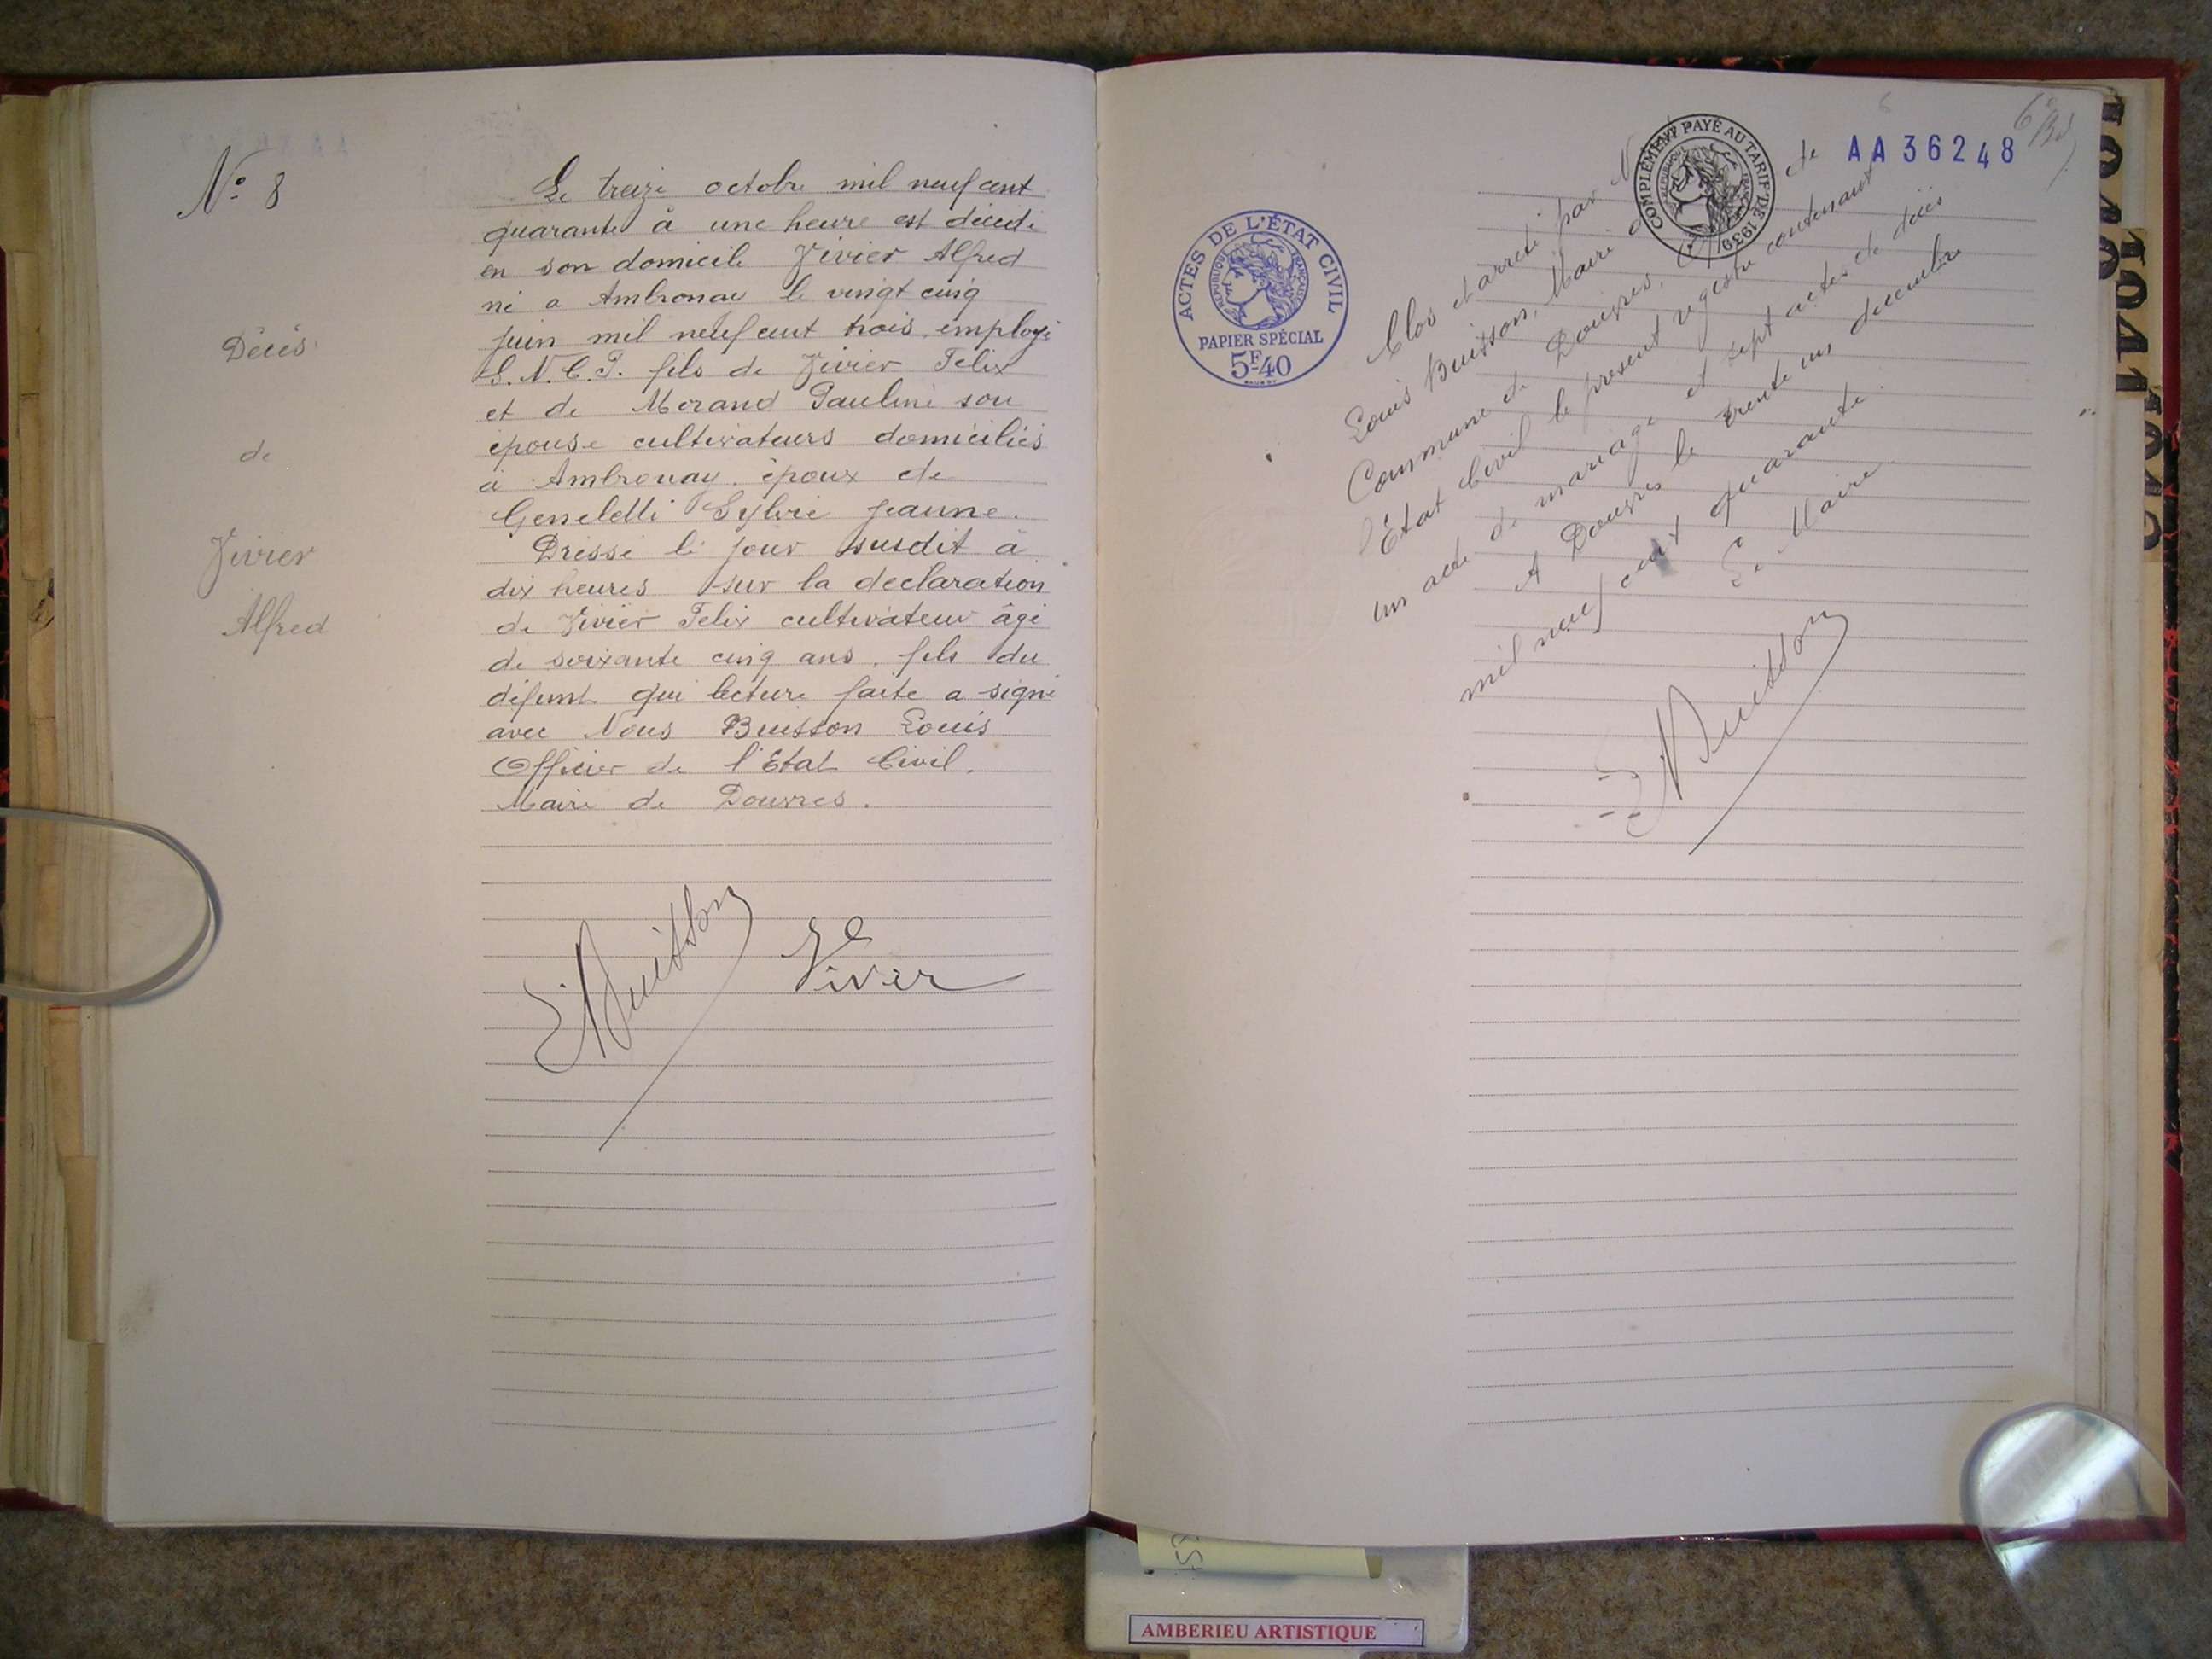 N° 8
Décès
de
Vivier
Alfred
Le treize octobre mil neuf cent
quarante à une heure est décédé
en son domicile Vivier Alfred
né a Ambronay le vingt cinq
juin mil neuf cent trois employé
S.N.C.F. fils de Vivier Felix
et de Morand Pauline son
épouse cultivateurs domiciliés
à Ambronay. époux de
Geneletti Sylvie Jeanne.
Dressé le jour susdit à
dix heures sur la declaration
de Vivier Felix cultivateur âgé
de soixante cinq ans. fils du
défunt qui lecture faite a signé
avec Nous Buisson Louis
Officier de l'État Civil.
Maire de Douvres.
LBuisson
Vivier
ACTES DE L'ÉTAT CIVIL
RÉPUBLIQUE FRANÇAISE
PAPIER SPÉCIAL
5F40
COMPLÉMENT PAYÉ AU TARIF DE 1939
RÉPUBLIQUE FRANÇAISE
AA36248
Clos et arrêté par
Louis Buisson, Maire de
Commune de Douvres,
l'État Civil le présent registre contenant
un acte de mariage et sept actes de décès
A Douvres le trente un décembre
mil neuf cent quarante.
Le Maire
LBuisson
1940
1941
AMBERIEU ARTISTIQUE